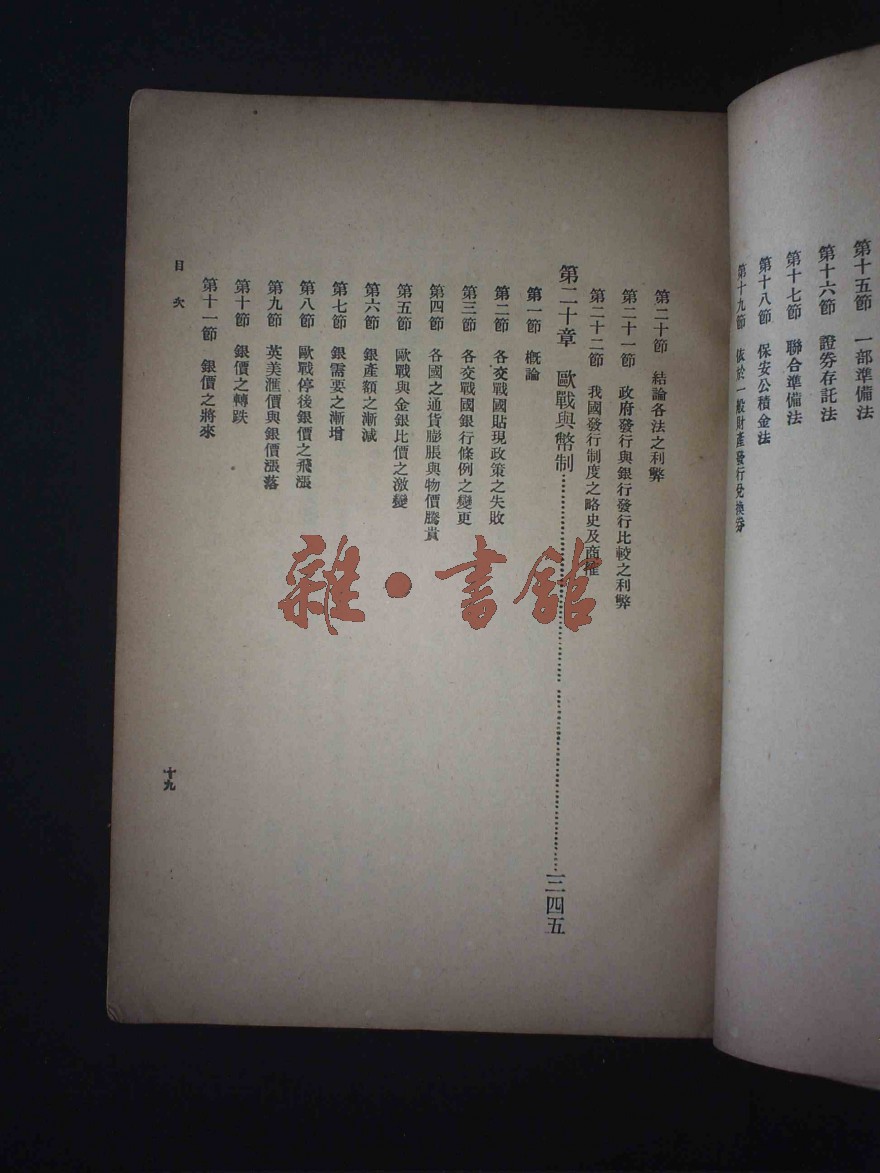 第十五節　一部準備法
第十六節　證券存託法
第十七節　聯合準備法
第十八節　保安公積金法
第十九節　依於一般財產發行兌換券
第二十節　結論各法之利弊
第二十一節　政府發行與銀行發行比較之利弊
第二十二節　我國發行制度之略史及商榷
第二十章　歐戰與幣制……三四五
第一節　概論
第二節　各交戰國貼現政策之失敗
第三節　各交戰國銀行條例之變更
第四節　各國之通貨膨脹與物價騰貴
第五節　歐戰與金銀比價之激變
第六節　銀產額之漸減
第七節　銀需要之漸增
第八節　歐戰停後銀價之飛漲
第九節　英美滙價與銀價漲落
第十節　銀價之轉跌
第十一節　銀價之將來
目次
十九
雜・書館